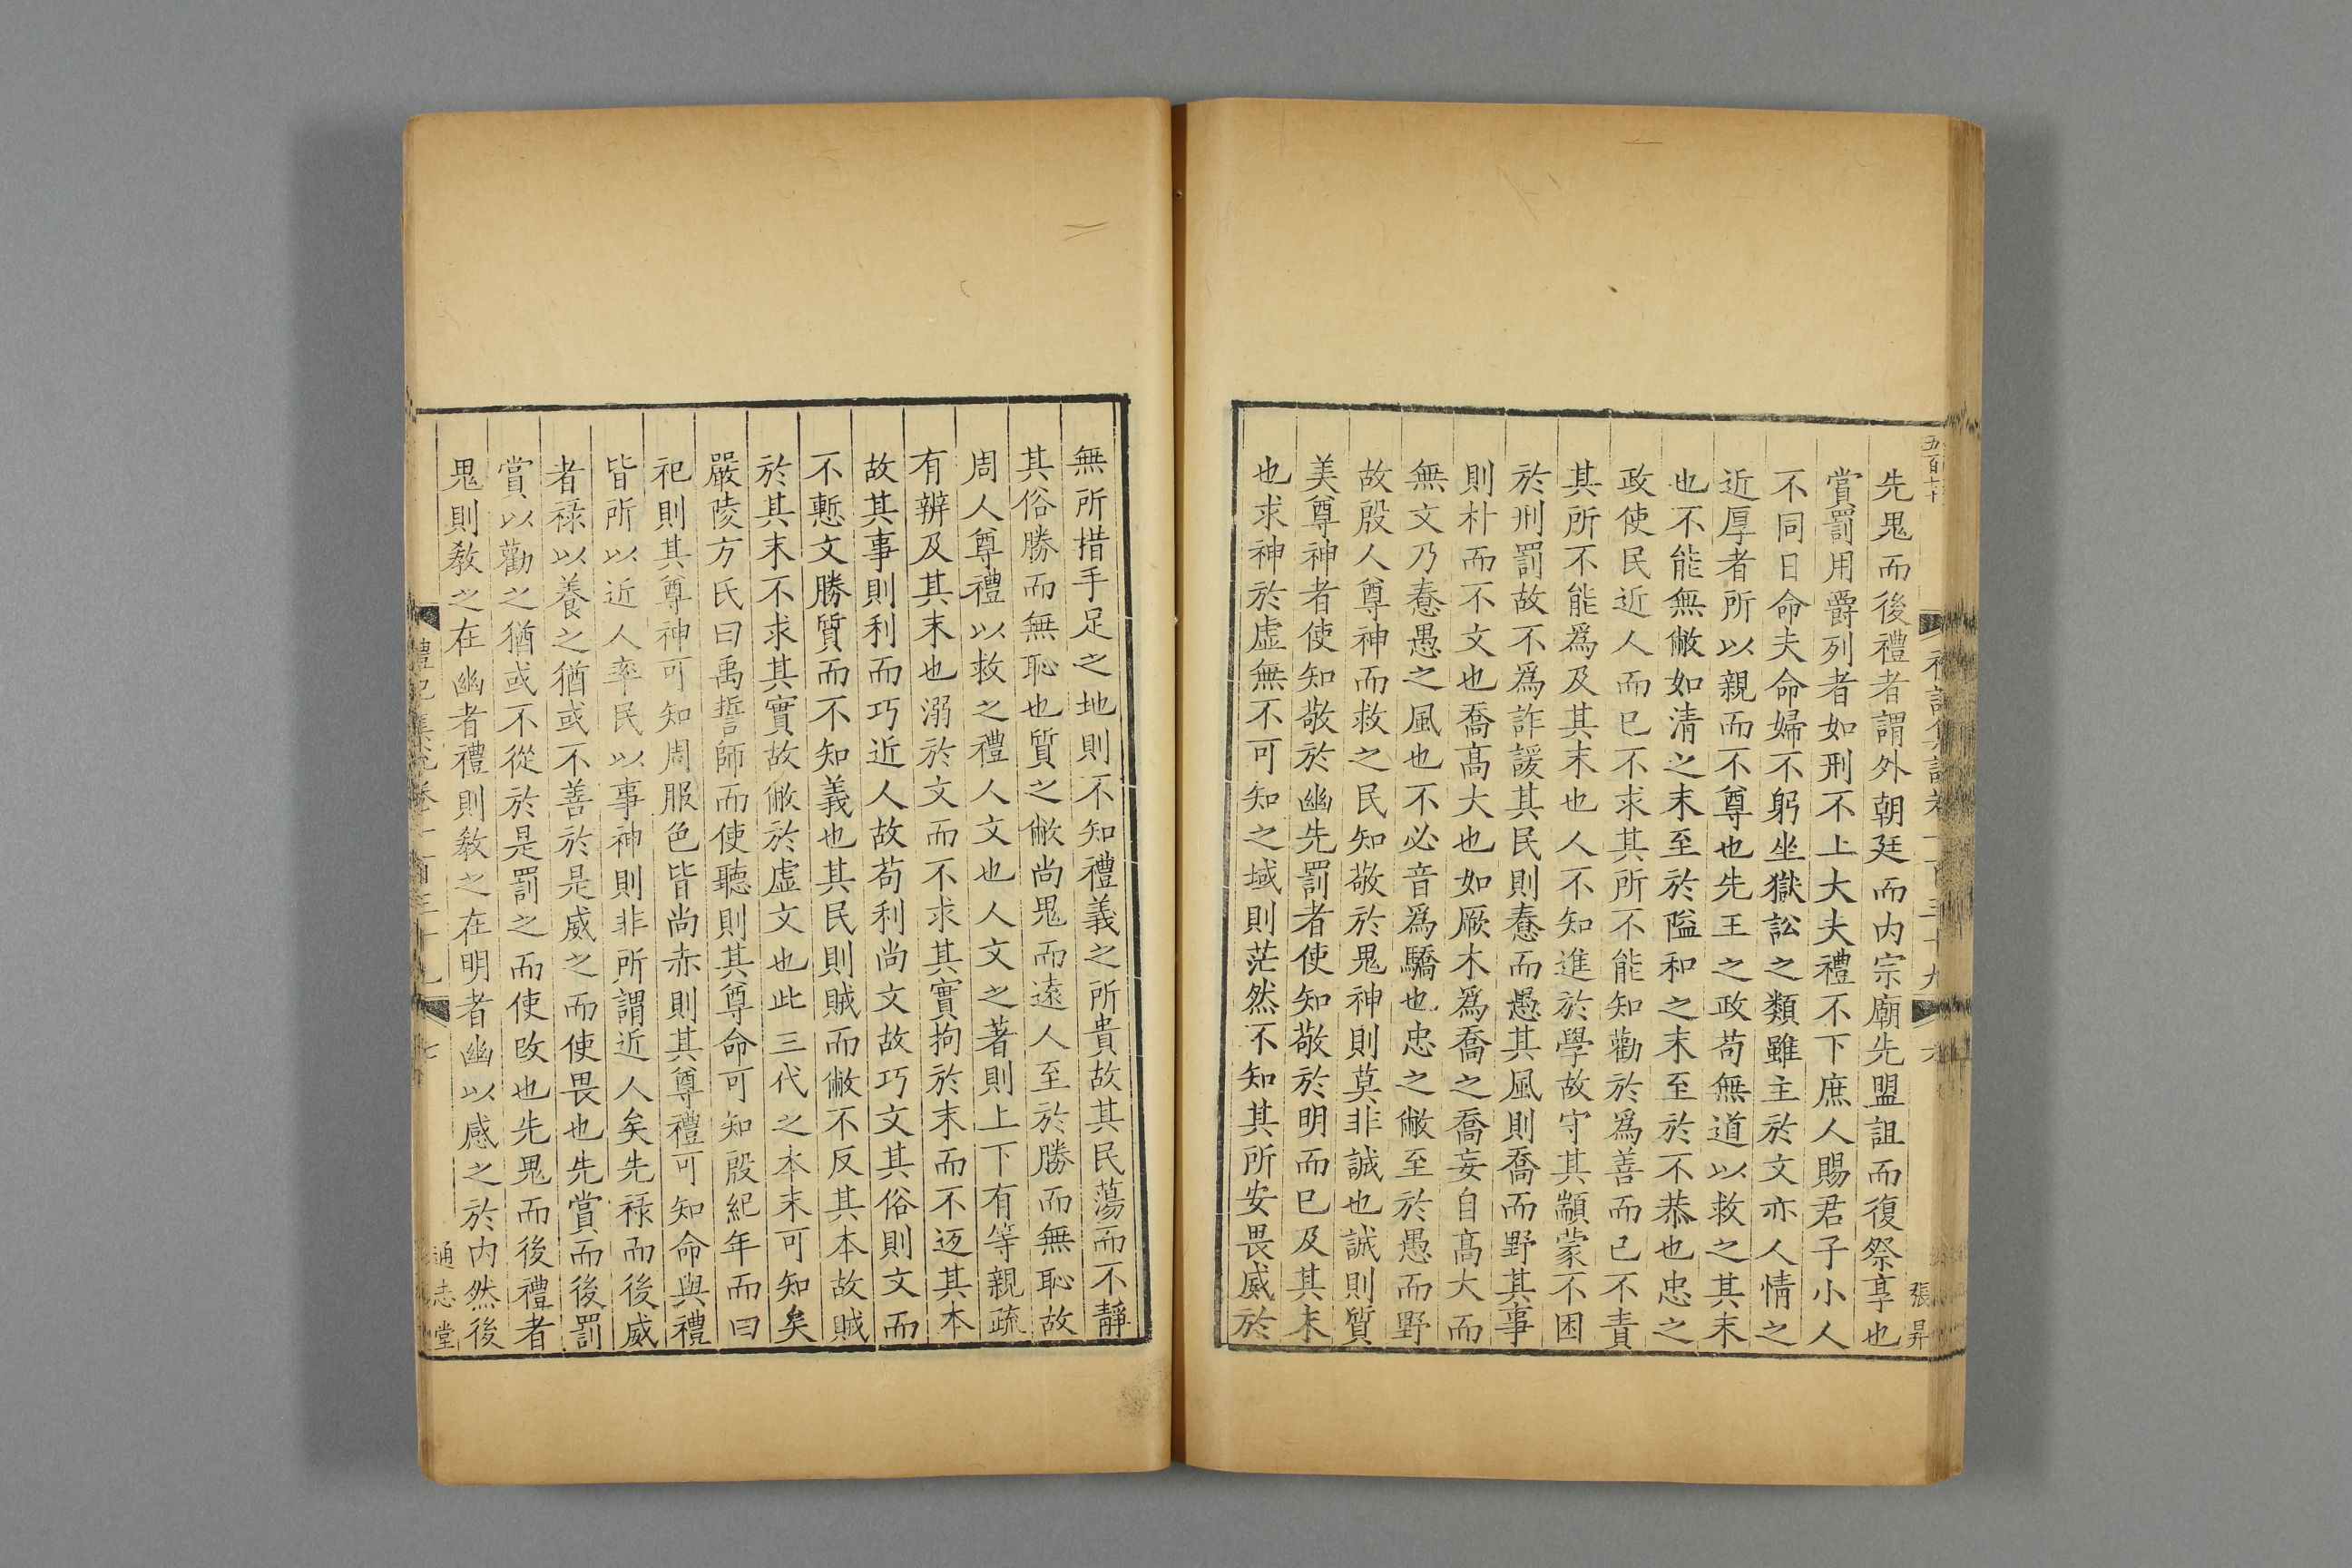 先鬼而後禮者謂外朝廷而内宗廟先盟詛而復祭享也
賞罰用爵列者如刑不上大夫禮不下庶人賜君子小人
不同日命夫命婦不躬坐獄訟之類雖主於文亦人情之
近厚者所以親而不尊也先王之政苟無道以救之其末
也不能無敝如清之末至於隘和之末至於不恭也忠之
政使民近人而已不求其所不能知勸於爲善而已不責
其所不能爲及其末也人不知進於學故守其顓蒙不困
於刑罰故不爲詐諼其民則惷而愚其風則喬而野其事
則朴而不文也喬髙大也如厥木爲喬之喬妄自髙大而
無文乃惷愚之風也不必音爲驕也忠之敝至於愚而野
故殷人尊神而救之民知敬於鬼神則莫非誠也誠則質
美尊神者使知敬於幽先罰者使知敬於明而已及其末
也求神於虛無不可知之域則茫然不知其所安畏威於
五百七十
六
張昇
無所措手足之地則不知禮義之所貴故其民蕩而不靜
其俗勝而無恥也質之敝尚鬼而遠人至於勝而無恥故
周人尊禮以救之禮人文也人文之著則上下有等親疏
有辨及其末也溺於文而不求其實拘於末而不返其本
故其事則利而巧近人故苟利尚文故巧文其俗則文而
不慙文勝質而不知義也其民則賊而敝不反其本故賊
於其末不求其實故敝於虛文也此三代之本末可知矣
嚴陵方氏曰禹誓師而使聽則其尊命可知殷紀年而曰
祀則其尊神可知周服色皆尚赤則其尊禮可知命與禮
皆所以近人率民以事神則非所謂近人矣先祿而後威
者祿以養之猶或不善於是威之而使畏也先賞而後罰
賞以勸之猶或不從於是罰之而使改也先鬼而後禮者
鬼則敎之在幽者禮則敎之在明者幽以感之於内然後
禮記集說卷一百三十九
七
通志堂